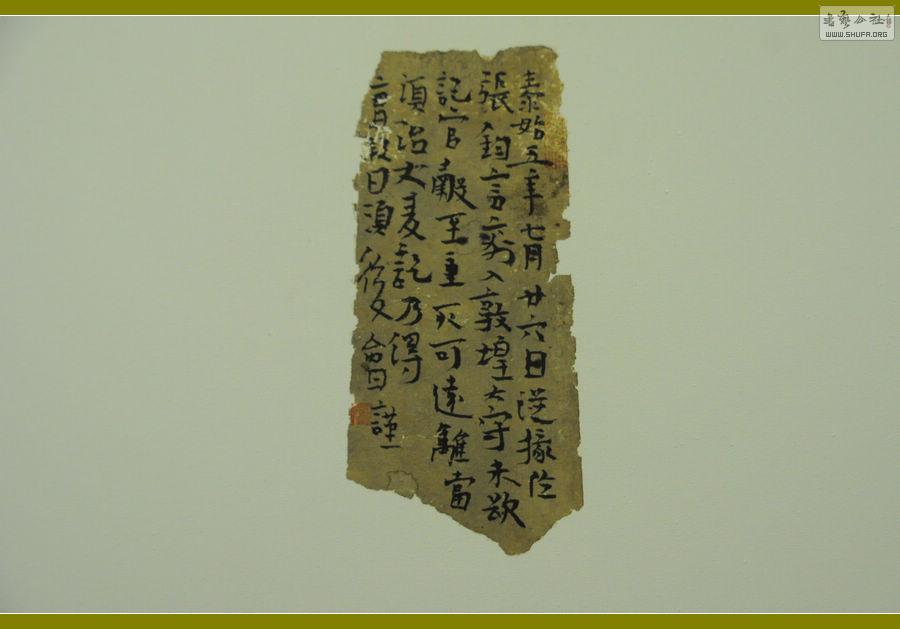 泰始五年七月廿六日從掾位
張鈞言敦入敦煌大守未欲
訖官穀至重不可遠離當
須治大麦訖乃得
日須後會謹
書藝公社
WWW.SHUFA.ORG